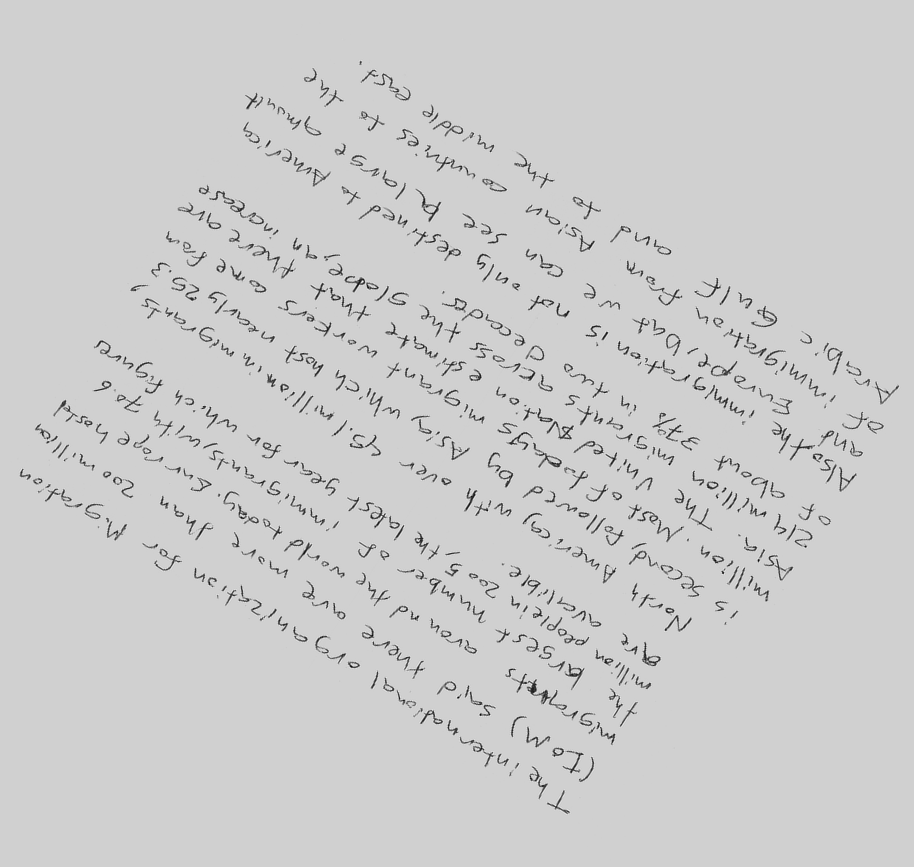 The international organization for Migration
(IOM) said there are more than 200 million
migrants around the world today. Europe hosted
the largest number of immigrants, with 70.6
million people in 2005, the latest year for which figures
are avalible.
North America, with over 45.1 million immigrants,
is second, followed by Asia, which host nearly 25.3
million. Most of todays migrant workers come from
Asia. The United Nation estimate that there are
214 million migrants across the globe, an increase
of about 37% in two decades.
Also the immigration is not only destined to America
and Europe, but we can see A large amoult
of immigration from Asian countries to the
Arabic Gulf and to the middle east.